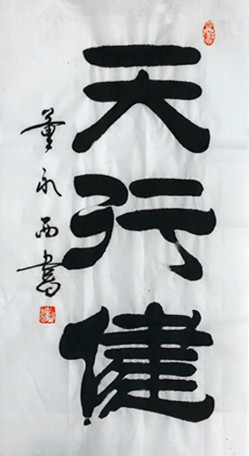 天行健
董永西书